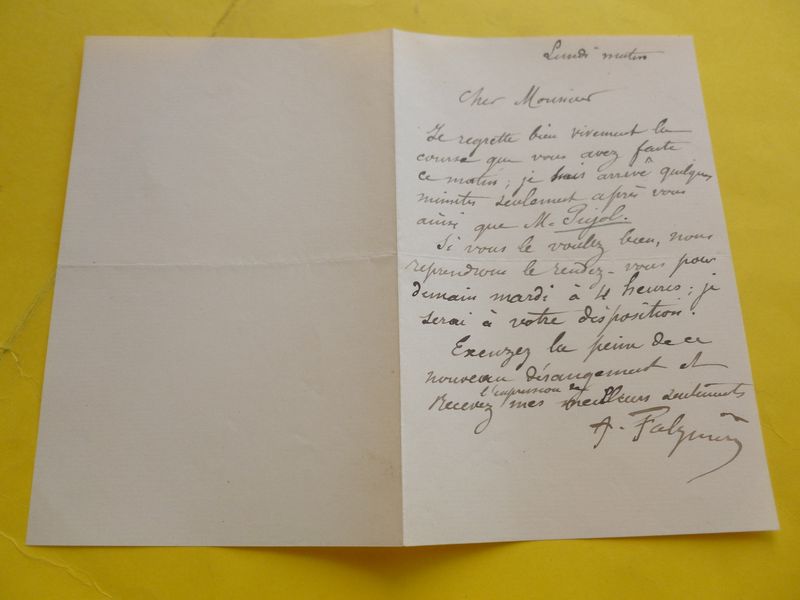 Lundi matin
Cher Monsieur
Je regrette bien vivement la
course que vous avez faite
ce matin; je suis arrivé quelques
minutes seulement après vous
ainsi que M. Pujol.
Si vous le voulez bien, nous
reprendrons le rendez-vous pour
demain mardi à 4 heures; je
serai à votre disposition.
Excuzez la peine de ce
nouveau dérangement et
l'expression de
Recevez mes meilleurs sentiments
A.